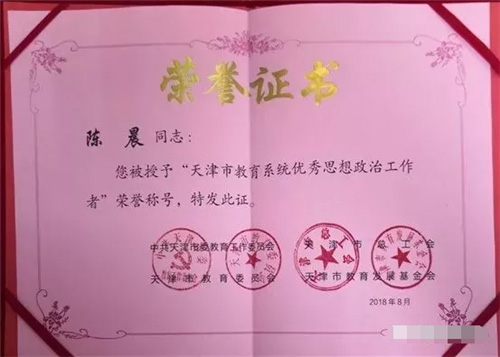 荣誉证书
陈晨 同志：
您被授予“天津市教育系统优秀思想政治工作
者”荣誉称号，特发此证。
中共天津市委教育工作委员会 天津市总工会
天津市教育委员会 天津市教育发展基金会
2018年8月